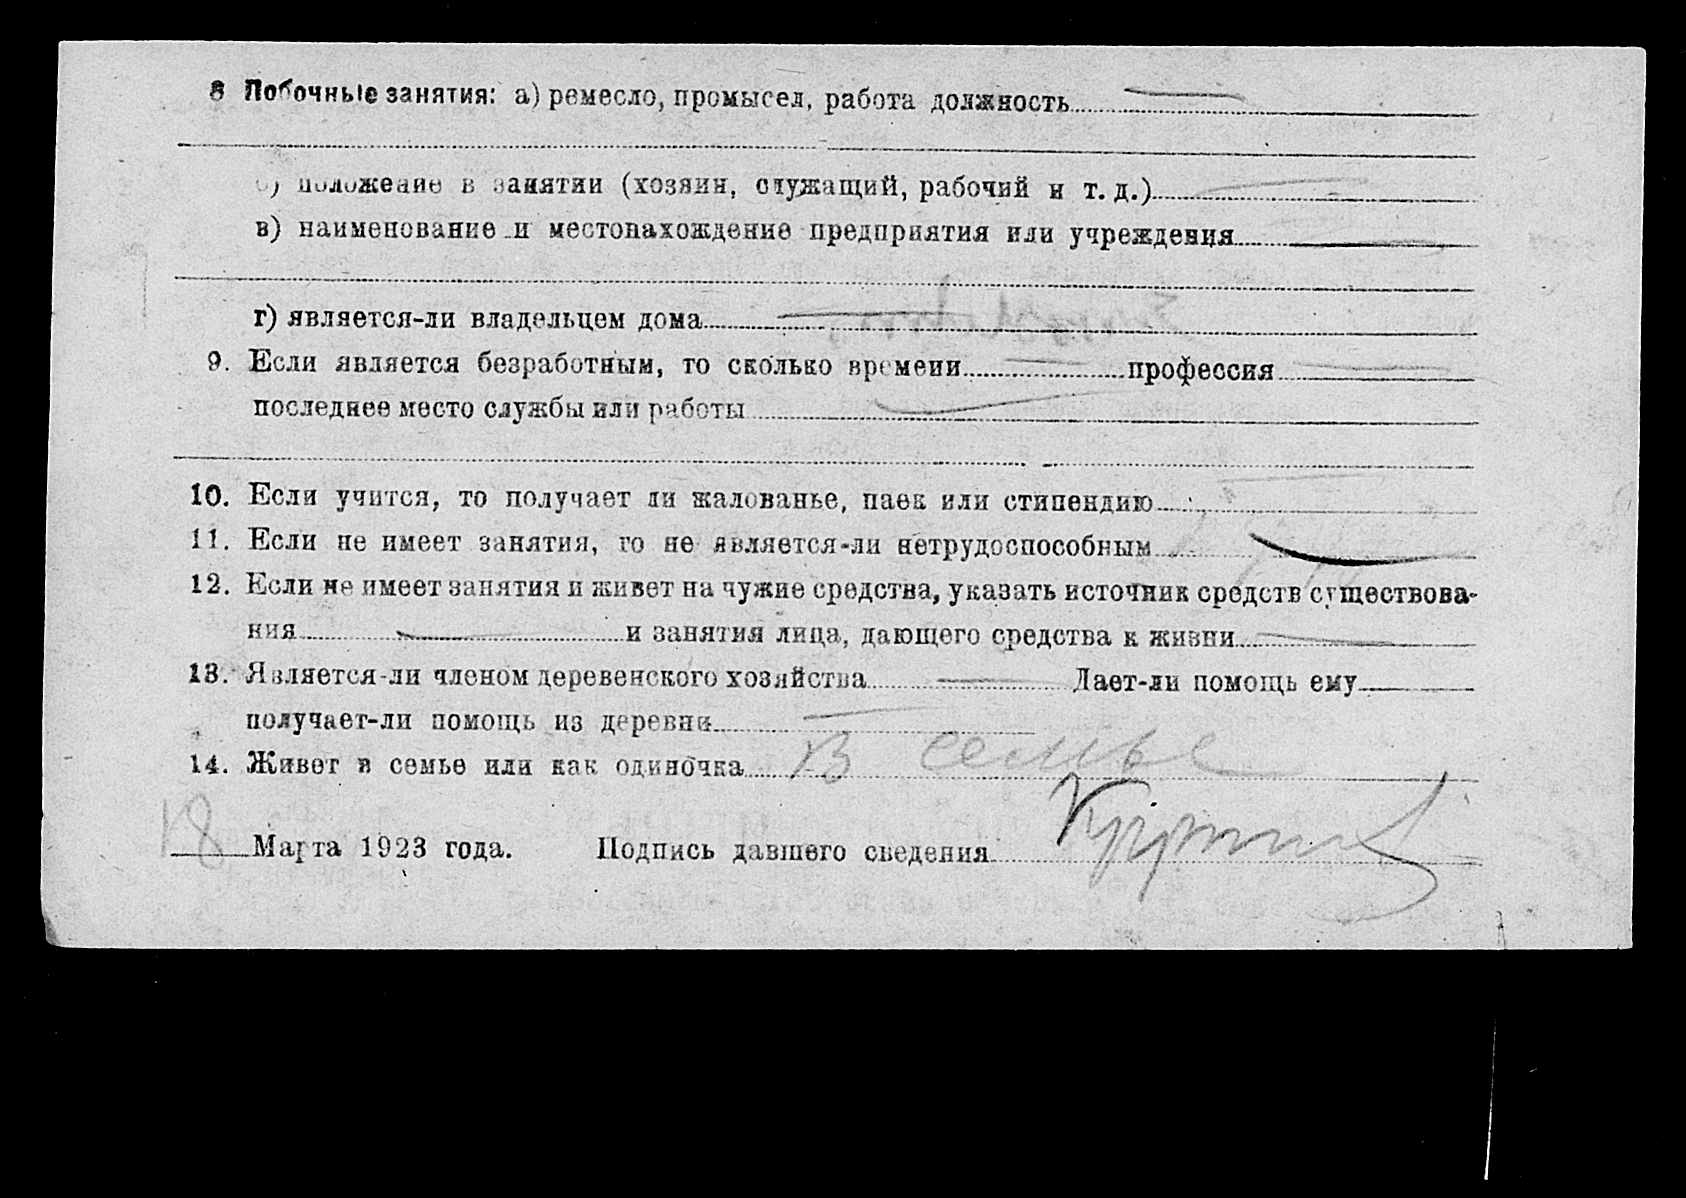 8 Побочные занятия: а) ремесло, промысел, работа должность
б) положение в занятии (хозяин, служащий, рабочий и т. д.)
в) наименование и местонахождение предприятия или учреждения
г) является-ли владельцем дома
9. Если является безработным, то сколько времени профессия
последнее место службы или работы
10. Если учится, то получает ли жалованье, паек или стипендию
11. Если не имеет занятия, то не является-ли нетрудоспособным
12. Если не имеет занятия и живет на чужие средства, указать источник средств существова-
ния и занятия лица, дающего средства к жизни
13. Является-ли членом деревенского хозяйства Дает-ли помощь ему
получает-ли помощь из деревни
14. Живет в семье или как одиночка В семье
18 Марта 1923 года. Подпись давшего сведения